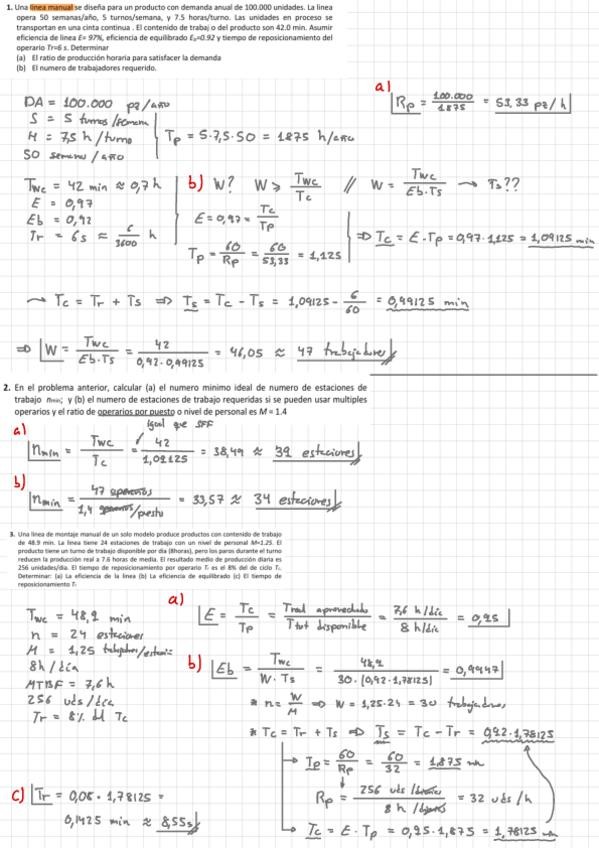 1. Una linea manual se diseña para un producto con demanda anual de 100.000 unidades. La linea
opera 50 semanas/año, 5 turnos/semana, y 7.5 horas/turno. Las unidades en proceso se
transportan en una cinta continua . El contenido de trabaj o del producto son 42.0 min. Asumir
eficiencia de linea E= 97%, eficiencia de equilibrado Eb=0.92 y tiempo de reposicionamiento del
operario Tr=6 s. Determinar
(a) El ratio de producción horaria para satisfacer la demanda
(b) El numero de trabajadores requerido.
a)
Rp = 100.000 / 1875 = 53,33 pz/h
DA = 100.000 pz/año
S = 5 turnos/semana
H = 7,5 h/turno
50 semana/año
Tp = 5·7,5·50 = 1875 h/año
Twc = 42 min ≈ 0,7 h
E = 0,97
Eb = 0,92
Tr = 6s ≈ 6/3600 h
b) W? W ≥ Twc/Tc // W = Twc/Eb·Ts → Ts??
E = 0,97 = Tc/Tp
Tp = 60/Rp = 60/53,33 = 1,125
⇒ Tc = E·Tp = 0,97·1,125 = 1,09125 min
→ Tc = Tr + Ts ⇒ Ts = Tc - Ts = 1,09125 - 6/60 = 0,99125 min
⇒ W = Twc/Eb·Ts = 42/0,92·0,99125 = 46,05 ≈ 47 trabajadores
2. En el problema anterior, calcular (a) el numero minimo ideal de numero de estaciones de
trabajo nmin; y (b) el numero de estaciones de trabajo requeridas si se pueden usar multiples
operarios y el ratio de operarios por puesto o nivel de personal es M = 1.4
a)
igual que SFF
nmin = Twc/Tc = 42/1,09125 = 38,49 ≈ 39 estaciones
b)
nmin = 47 operarios / 1,4 operarios/puesto = 33,57 ≈ 34 estaciones
3. Una linea de montaje manual de un solo modelo produce productos con contenido de trabajo
de 48.9 min. La linea tiene 24 estaciones de trabajo con un nivel de personal M=1.25. El
producto tiene un turno de trabajo disponible por dia (8horas), pero los paros durante el turno
reducen la producción real a 7.6 horas de media. El resultado medio de producción diaria es
256 unidades/dia. El tiempo de reposicionamiento por operario Tr es el 8% del de ciclo Tc.
Determinar: (a) La eficiencia de la linea (b) La eficiencia de equilibrado (c) El tiempo de
reposicionamiento Tr
a)
E = Tc/Tp = Treal aprovechado / Ttot disponible = 7,6 h/día / 8 h/día = 0,95
Twc = 48,9 min
n = 24 estaciones
M = 1,25 trabajadores/estación
8h/día
MTBF = 7,6h
256 uds/día
Tr = 8% del Tc
b) Eb = Twc/W·Ts = 48,9/30·(0,92·1,78125) = 0,9947
* n = W/M ⇒ W = 1,25·24 = 30 trabajadores
* Tc = Tr + Ts ⇒ Ts = Tc - Tr = 0,92·1,78125
Tp = 60/Rp = 60/32 = 1,875 min
Rp = 256 uds/ / 8 h/ = 32 uds/h
Tc = E·Tp = 0,95·1,875 = 1,78125 min
c) Tr = 0,08 · 1,78125 =
0,1425 min ≈ 8,55s